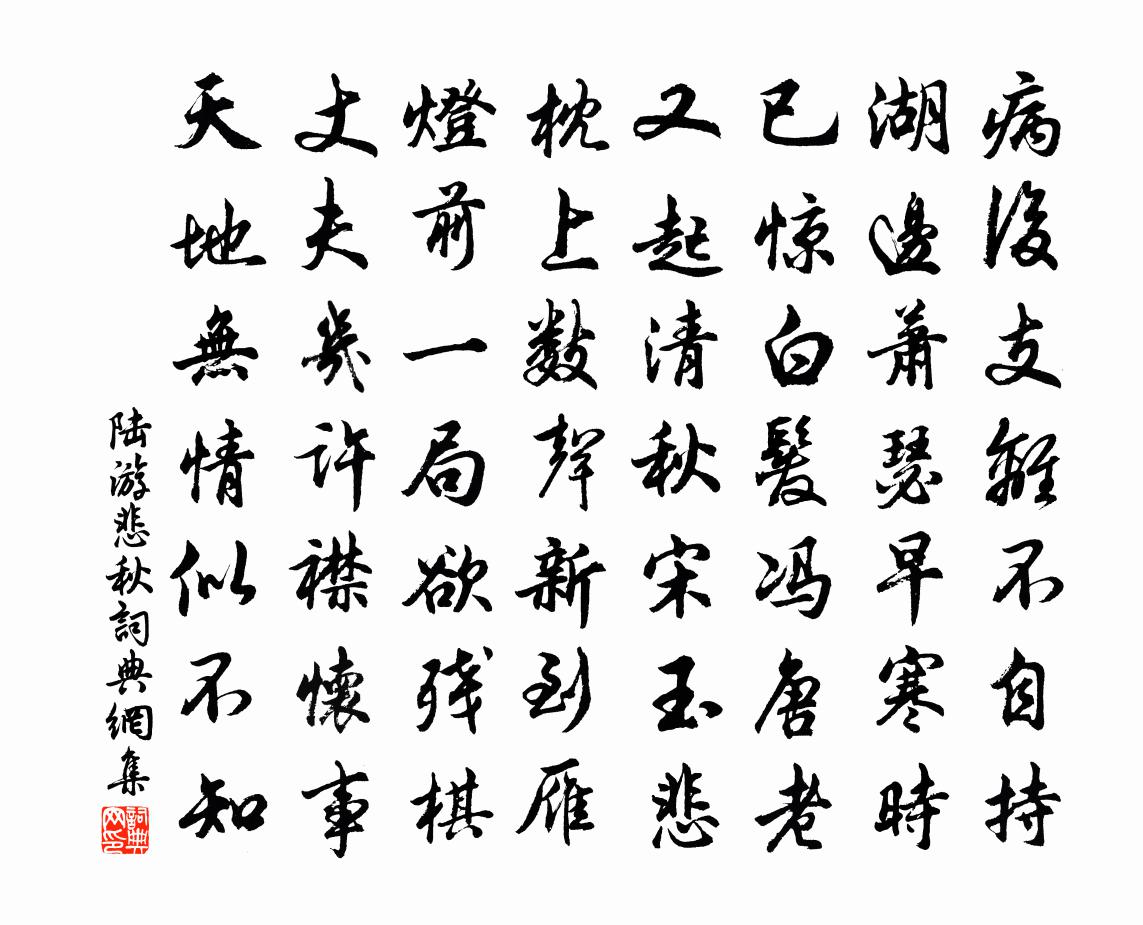 病後支離不自持
湖邊蕭瑟早寒時
已惊白髮冯唐老
又起清秋宋玉悲
枕上數聲新到雁
燈前一局欲残棋
丈夫幾許襟懷事
天地無情似不知
陆游悲秋詞典網集
詞典网印